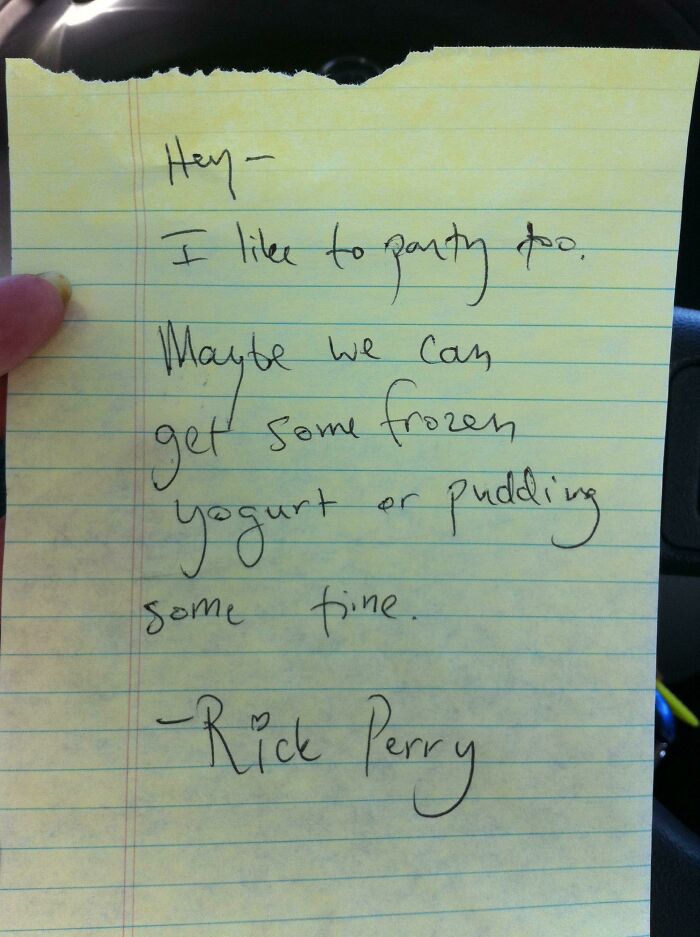 Hey -
I like to party too.
Maybe we can
get some frozen
yogurt or pudding
some time.
- Rick Perry